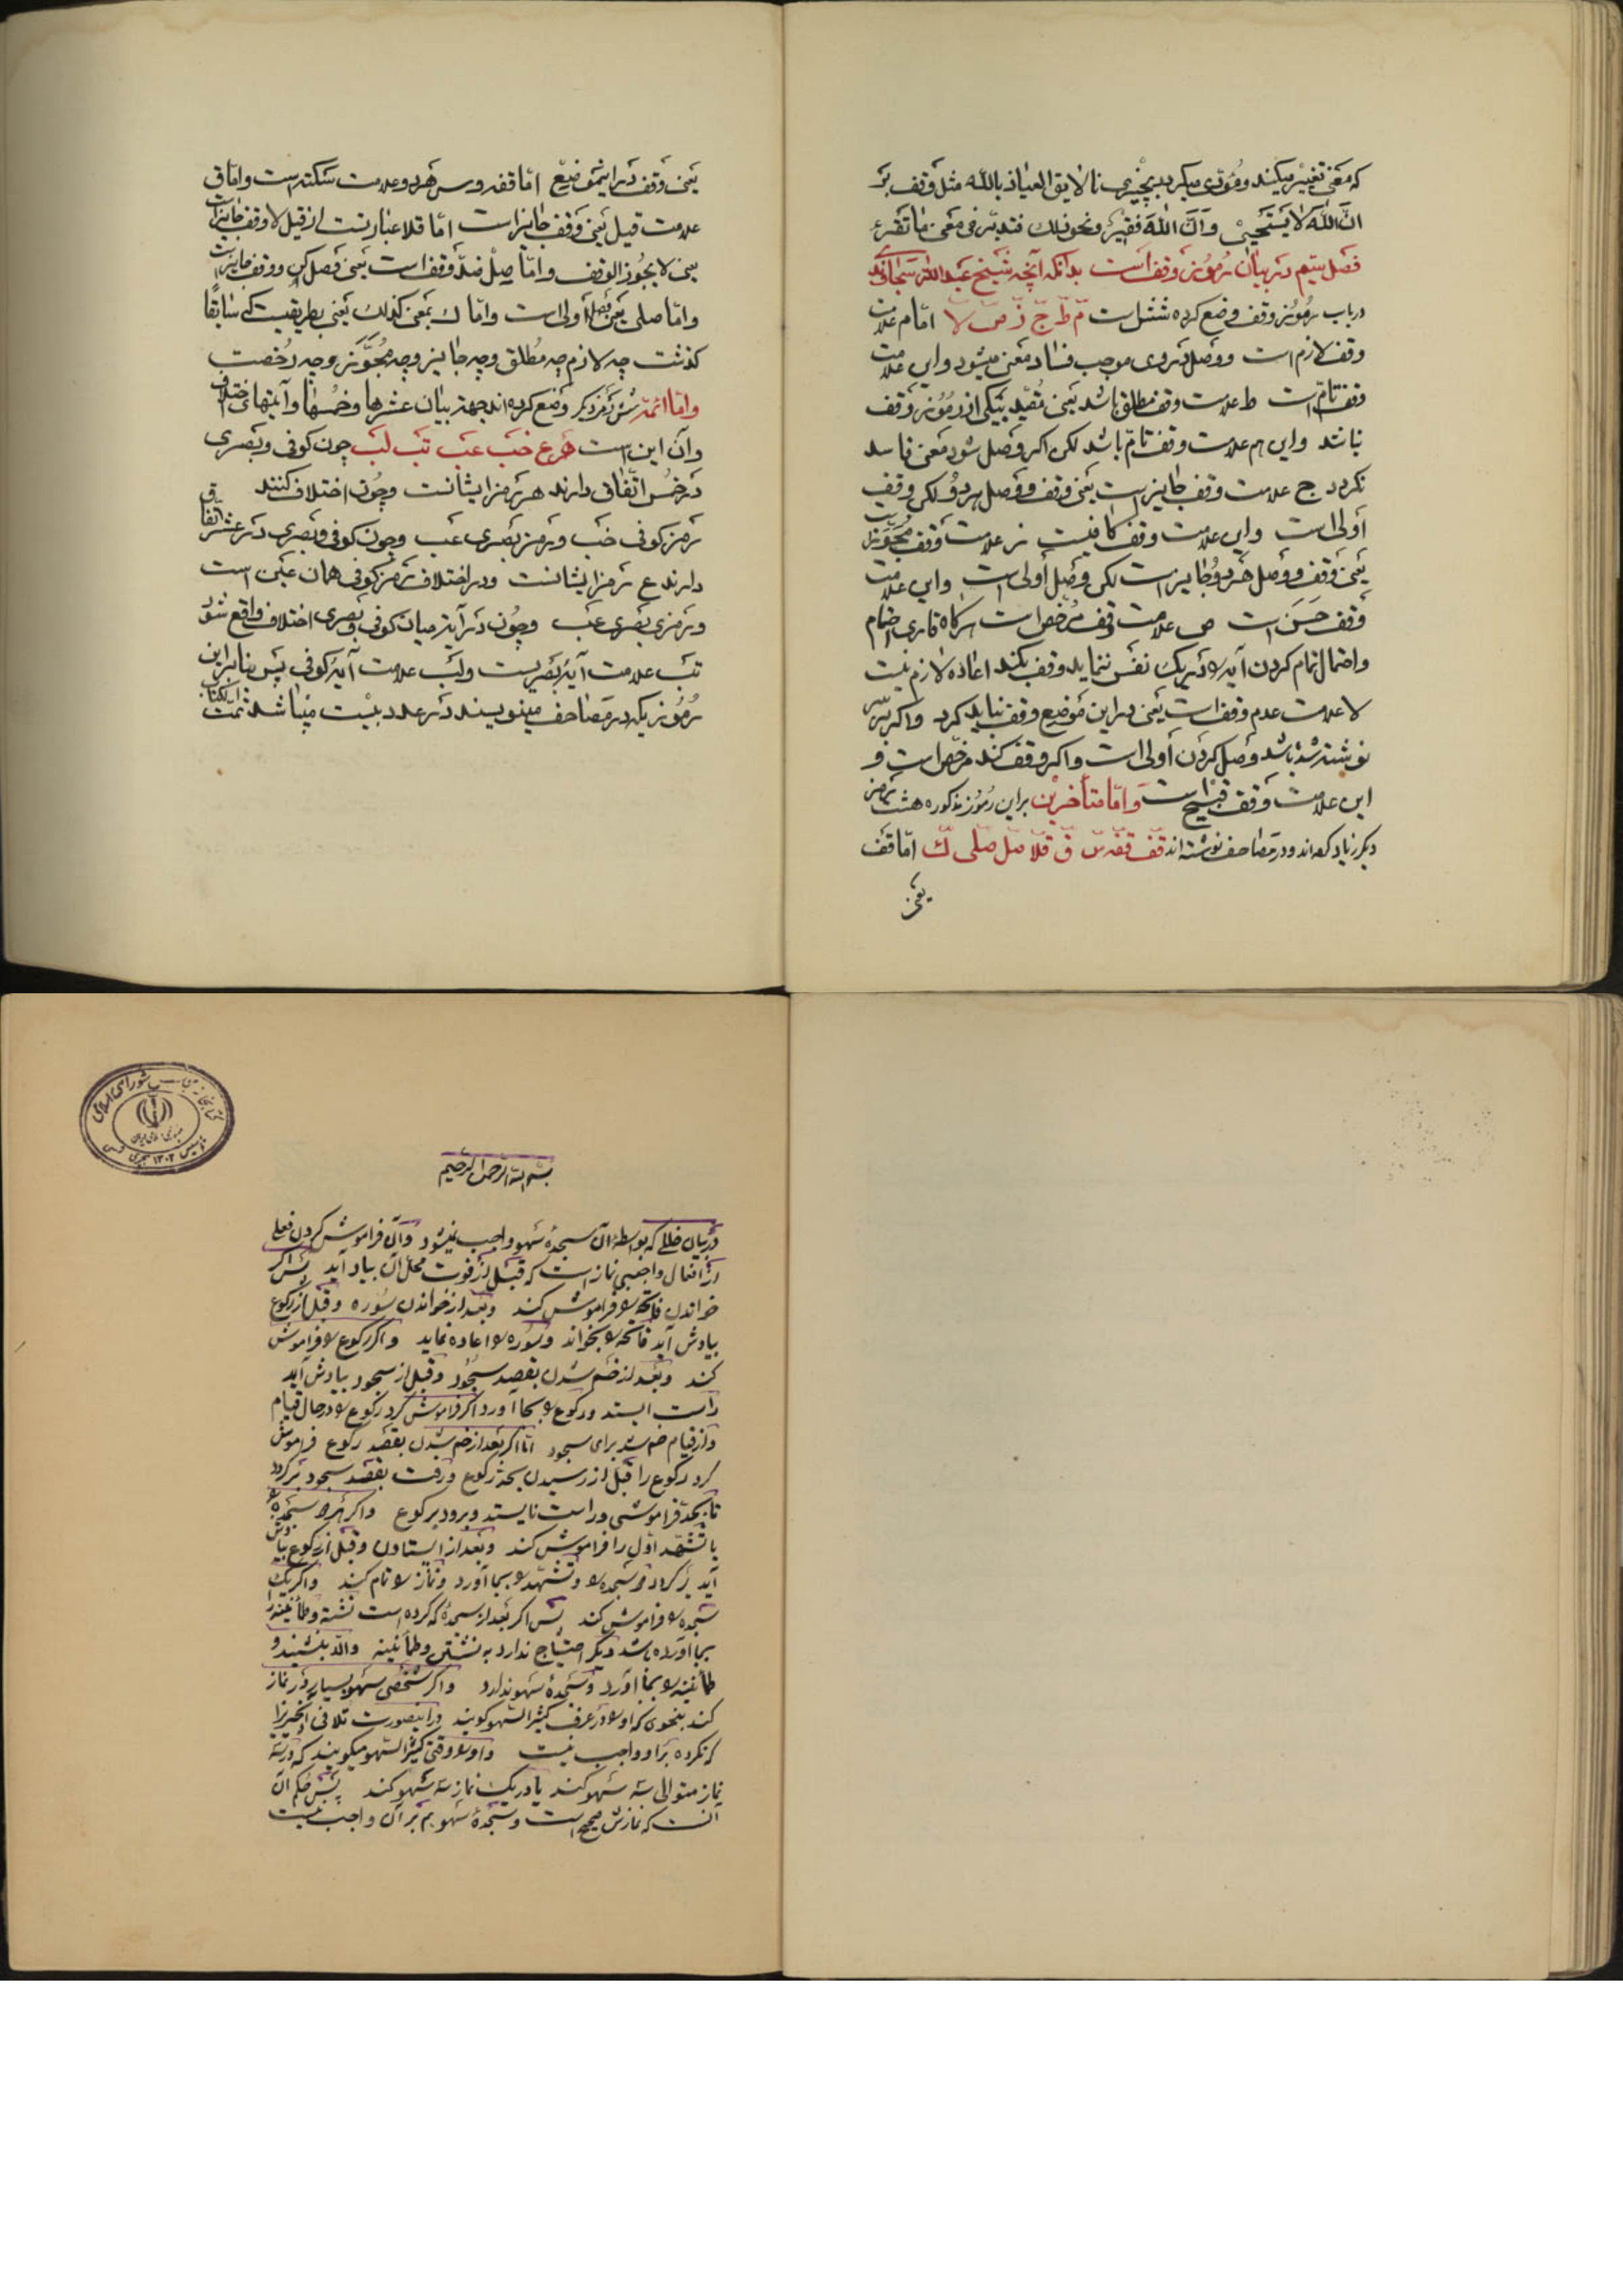 که معنی تغییر میکند ومؤدی میکردد بچیزی نالایق العیاذ بالله مثل وقف بر
ان الله لا یستحیی وان الله فقیر ونحو ذلك فتدبر فی معنی ما تقرء
فصل سیم در بیان رموز وقف است بدانکه آنچه شیخ عبدالله سجاوندی
درباب رموز وقف وضع کرده شش است م ط ج ز ص لا امّا م علامت
وقف لازم است ووصل در وی موجب فساد معنی میشود واین علامت
وقف تامّ است ط علامت وقف مطلق باشد یعنی مقید بیکی از رموز وقف
نباشد واین هم علامت وقف تامّ باشد لکن اکر وصل شود معنی فاسد
نکردد ج علامت وقف جایز است یعنی وقف ووصل هر دو لکن وقف
أولی است واین علامت وقف کافیست ز علامت وقف مجوّز است
یعنی وقف ووصل هر دو جایز است لکن وصل أولی است واین علامت
وقف حسن است ص علامت وقف مرخص است هرکاه قاری
واحتمال تمام کردن آیه را در یک نفس ننماید وقف بکند اعاده لازم نیست
لا علامت عدم وقف است یعنی در این موضع وقف نباید کرد واکر بر سر
نوشته شده باشد وصل کردن أولی است واکر وقف کند مرخّص است و
این علامت وقف قبیح است وامّا متأخرین براین رموز مذکوره هشت رمز
دیکر زیاد کرده‌اند ودر مصاحف نوشته‌اند قف قفه س ق قلا صل صلی ك امّا قف
یعنی
یعنی وقف در اینموضع امّا قفه وس هر دو علامت سکته است وامّا ق
علامت قیل یعنی وقف جایز است امّا قلا عبارتست از قیل لا وقف جایز است
یعنی لا یجوز الوقف وامّا صل ضدّ وقف است یعنی وصل کن ووقف جایز است
وامّا صلی یعنی وصل أولی است وامّا ك بمعنی کذلك یعنی بطریقیست که سابقًا
کذشت چه لازم چه مطلق وچه جایز وچه مجوّز وچه رخصت
وامّا ائمّه شش رمز دیکر وضع کرده‌اند جهة بیان عشرها وخمسها وآیتهای اختلاف
وآن این است ه ع خب عب تب لب چون کوفی وبصری
در خمس اتّفاق دارند ه رمز ایشانست وچون اختلاف کنند
رمز کوفی خب ورمز بصری عب وچون کوفی وبصری در عشر اتّفاق
دارند ع رمز ایشانست ودر اختلاف رمز کوفی همان عین است
ورمز بصری عب وچون در آیة میان کوفی وبصری اختلاف واقع شود
تب علامت آیه بصریست ولب علامت آیهٔ کوفی پس بنابراین
رموزیکه در مصاحف مینویسند در عدد بیست میباشد تمّت الکتاب
بسم الله الرحمن الرحیم
در بیان خللی که بواسطه آن سجدهٔ سهو واجب نمیشود وآن فراموش کردن فعلی
از افعال واجبی نماز است که قبل از فوت محل آن بیاد آید پس اکر
خواندن فاتحه را فراموش کند وبعد از خواندن سوره وقبل از رکوع
بیادش آید فاتحه را بخواند وسوره را اعاده نماید واکر رکوع را فراموش
کند وبعد از خم شدن بقصد سجود وقبل از سجود بیادش آید
راست ایستد ورکوع را بجا آورد اکر فراموش کرد رکوع را در حال قیام
واز قیام خم شد برای سجود امّا اکر بعد از خم شدن بقصد رکوع فراموش
کرد رکوع را قبل از رسیدن بحد رکوع ورفت بقصد سجود برکردد
تا بحدّ فراموشی وراست نایستد وبرود برکوع واکر هر دو سجده را
یا تشهّد اوّل را فراموش کند وبعد از ایستادن وقبل از رکوع بیادش
آید برکردد ودو سجده را وتشهّد را بجا آورد ونماز را تمام کند واکر یک
سجده را فراموش کند پس اکر بعد از سجدهٔ که کرده است نشسته وطمأنینه را
بجا آورده باشد دیکر احتیاج ندارد به نشستن وطمأنینه والّا بنشیند و
طمأنینه را بجا آورد وسجدهٔ سهو ندارد واکر شخصی سهو بسیار در نماز
کند بنحوی که او را در عرف کثیر السّهو کویند در اینصورت تلافی آنچیز را
که نکرده بر او واجب نیست واو را وقتی کثیر السّهو میکویند که در سه
نماز متوالی سه سهو کند یا در یک نماز سه سهو کند پس حکم آن
آنست که نمازش صحیح است وسجدهٔ سهو هم بر آن واجب نیست